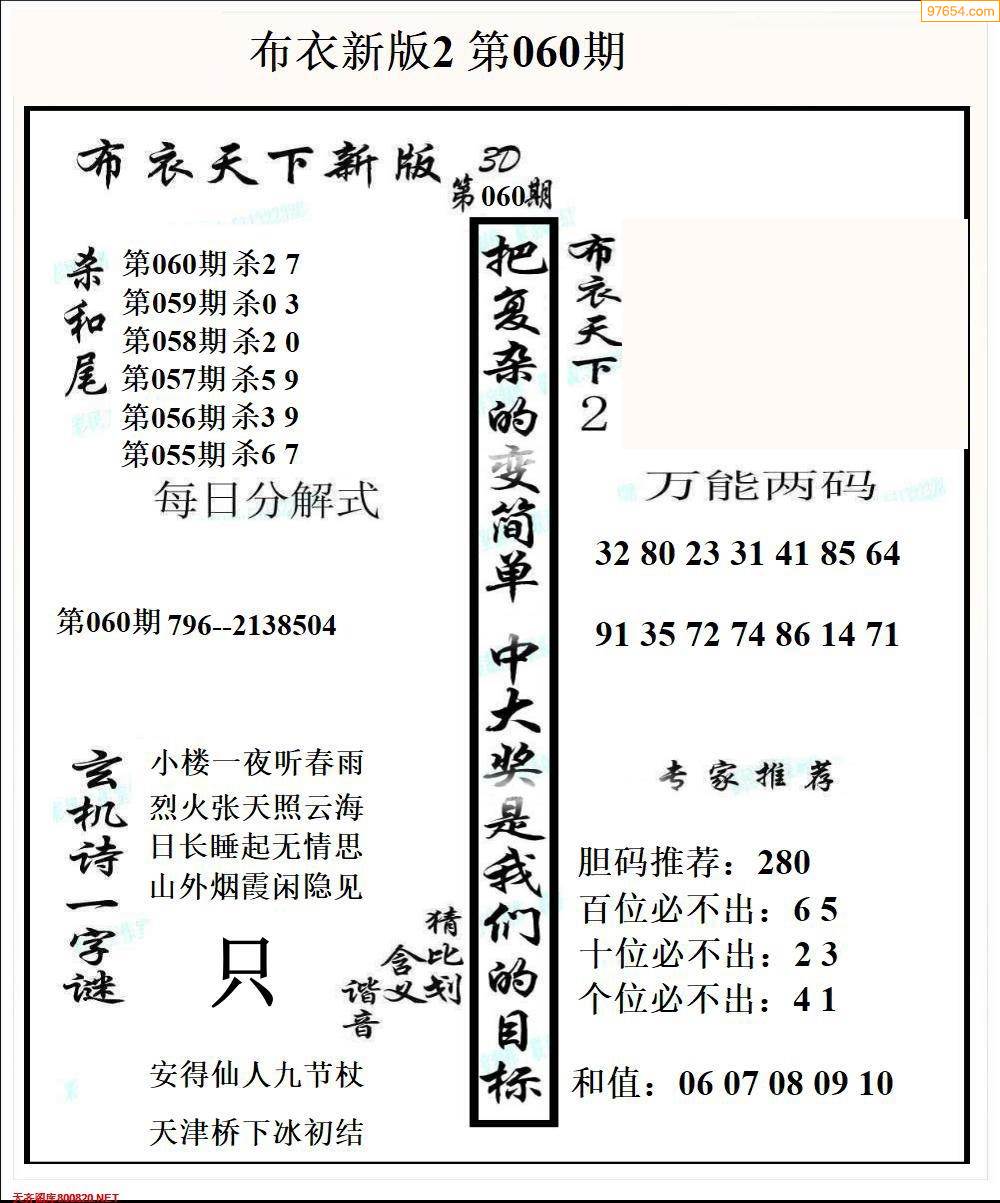 97654.com
布衣新版2 第060期
布衣天下新版 3D
第060期
杀和尾
第060期 杀2 7
第059期 杀0 3
第058期 杀2 0
第057期 杀5 9
第056期 杀3 9
第055期 杀6 7
每日分解式
第060期 796--2138504
把复杂的变简单 中大奖是我们的目标
布衣天下2
万能两码
32 80 23 31 41 85 64
91 35 72 74 86 14 71
玄机诗一字谜
小楼一夜听春雨
烈火张天照云海
日长睡起无情思
山外烟霞闲隐见
只
猜比划
含义
谐音
安得仙人九节杖
天津桥下冰初结
专家推荐
胆码推荐：280
百位必不出：6 5
十位必不出：2 3
个位必不出：4 1
和值：06 07 08 09 10
天齐图库800820.NET